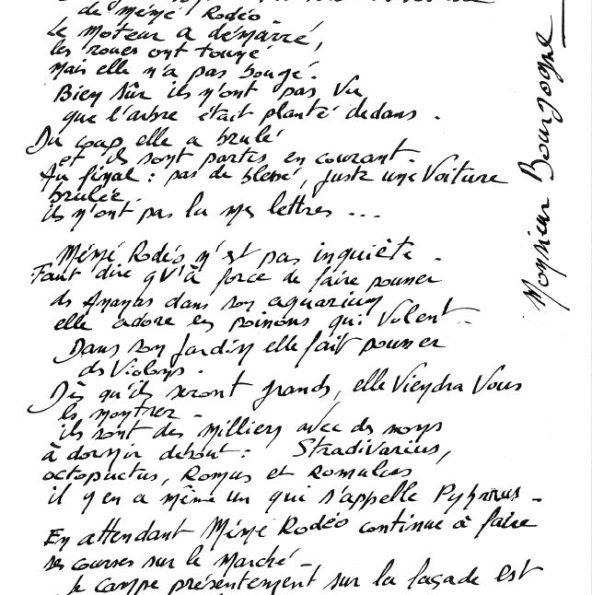 de Mémé Rodéo.
Le moteur a démarré,
les roues ont tourné
mais elle n'a pas bougé.
Bien sûr ils n'ont pas vu
que l'arbre était planté dedans.
Du coup elle a brulé
et ils sont partis en courant.
Au final : pas de blessé, juste une voiture
brulée.
ils n'ont pas lu mes lettres ...
Mémé Rodéo n'est pas inquiète.
Faut dire qu'à force de faire pousser
des Ananas dans son aquarium
elle adore les poissons qui volent.
Dans son jardin elle fait pousser
des Violons.
Dès qu'ils seront grands, elle viendra vous
les montrer.
ils sont des milliers avec des noms
à dormir debout : Stradivarius,
octopuctus, Romus et Romulus
il y en a même un qui s'appelle Pyhrrus.
En attendant Mémé Rodéo continue à faire
ses courses sur le marché.
Je campe présentement sur la façade est
Monsieur Bourgogne